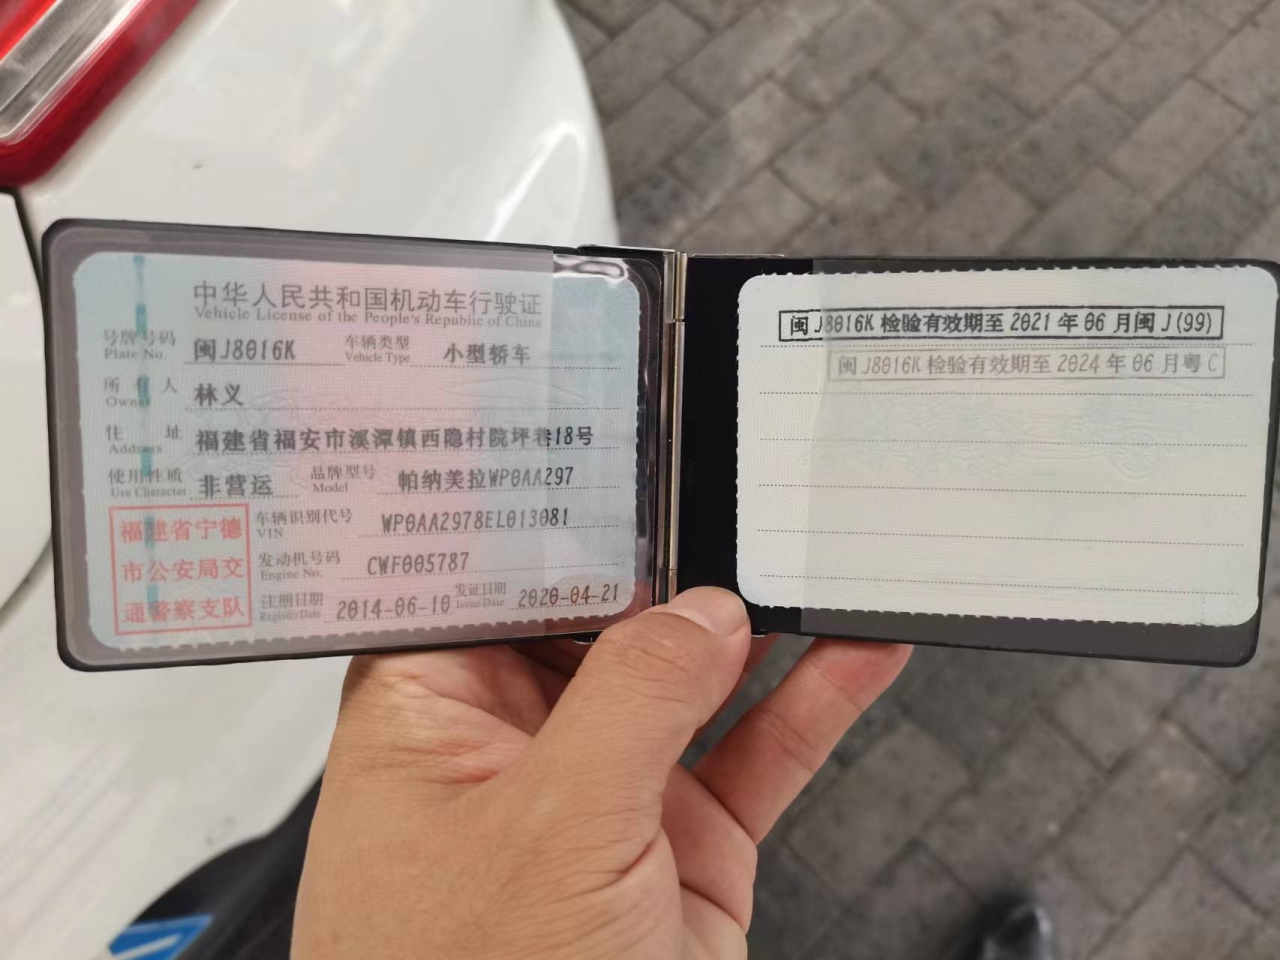 中华人民共和国机动车行驶证
Vehicle License of the People's Republic of China
号牌号码 闽J8016K 车辆类型 小型轿车
Plate No. Vehicle Type
所有人 林义
Owner
住址 福建省福安市溪潭镇西隐村院坪巷18号
Address
使用性质 非营运 品牌型号 帕纳美拉WP0AA297
Use Character Model
福建省宁德
市公安局交
通警察支队
车辆识别代号 WP0AA2978EL013081
VIN
发动机号码 CWF005787
Engine No.
注册日期 2014-06-10 发证日期 2020-04-21
Register Date Issue Date
闽J8016K 检验有效期至 2021 年 06 月闽J(99)
闽J8016K 检验有效期至 2024 年 06 月粤C